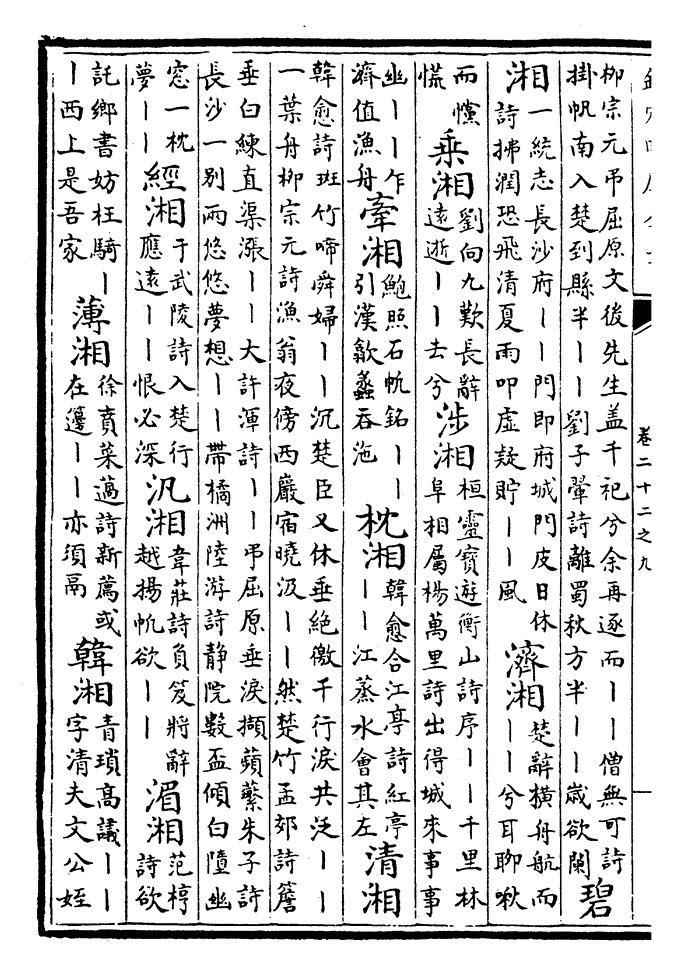 卷二十二之九
柳宗元弔屈原文後先生蓋千祀兮余再逐而丨丨僧無可詩
掛帆南入楚到縣半丨丨劉子翬詩離蜀秋方半丨丨歲欲闌
碧
湘
一統志長沙府丨丨門即府城門皮日休
詩拂澗恐飛清夏雨叩虛疑貯丨丨風
濟湘
楚辭橫舟航而
丨丨兮耳聊啾
而戃
慌
乘湘
劉向九歎長辭
遠逝丨丨去兮
涉湘
桓靈寶遊衡山詩序丨丨千里林
阜相屬楊萬里詩出得城來事事
幽丨丨乍
濟值漁舟
牽湘
鮑照石帆銘丨丨
引漢歙蠡吞沲
枕湘
韓愈合江亭詩紅亭
丨丨江蒸水會其左
清湘
韓愈詩斑竹啼舜婦丨丨沉楚臣又休垂絕徼千行淚共泛丨丨
一葉舟柳宗元詩漁翁夜傍西巖宿曉汲丨丨然楚竹孟郊詩簷
垂白練直渠漲丨丨大許渾詩丨丨弔屈原垂淚擷蘋蘩朱子詩
長沙一別兩悠悠夢想丨丨帶橘洲陸游詩靜院數盃傾白墮幽
窓一枕
夢丨丨
經湘
于武陵詩入楚行
應遠丨丨恨必深
汎湘
韋莊詩負笈將辭
越揚帆欲丨丨
湄湘
范梈
詩欲
託鄉書妨枉騎丨
丨西上是吾家
薄湘
徐賁菜薖詩新薦或
在籩丨丨亦須鬲
韓湘
青瑣高議丨丨
字清夫文公姪